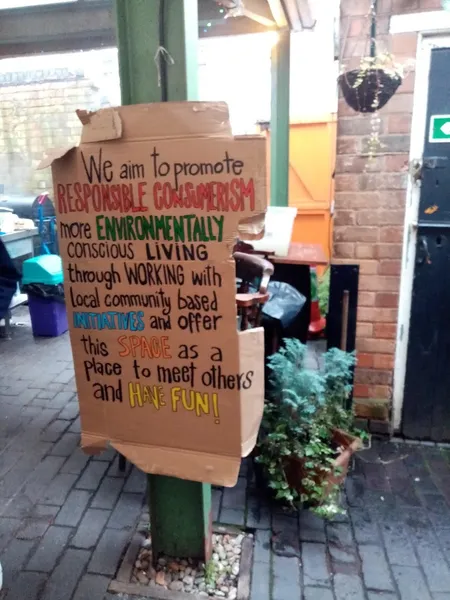 We aim to promote
RESPONSIBLE CONSUMERISM
more ENVIRONMENTALLY
conscious LIVING
through WORKING with
local community based
INITIATIVES and offer
this SPACE as a
place to meet others
and HAVE FUN!